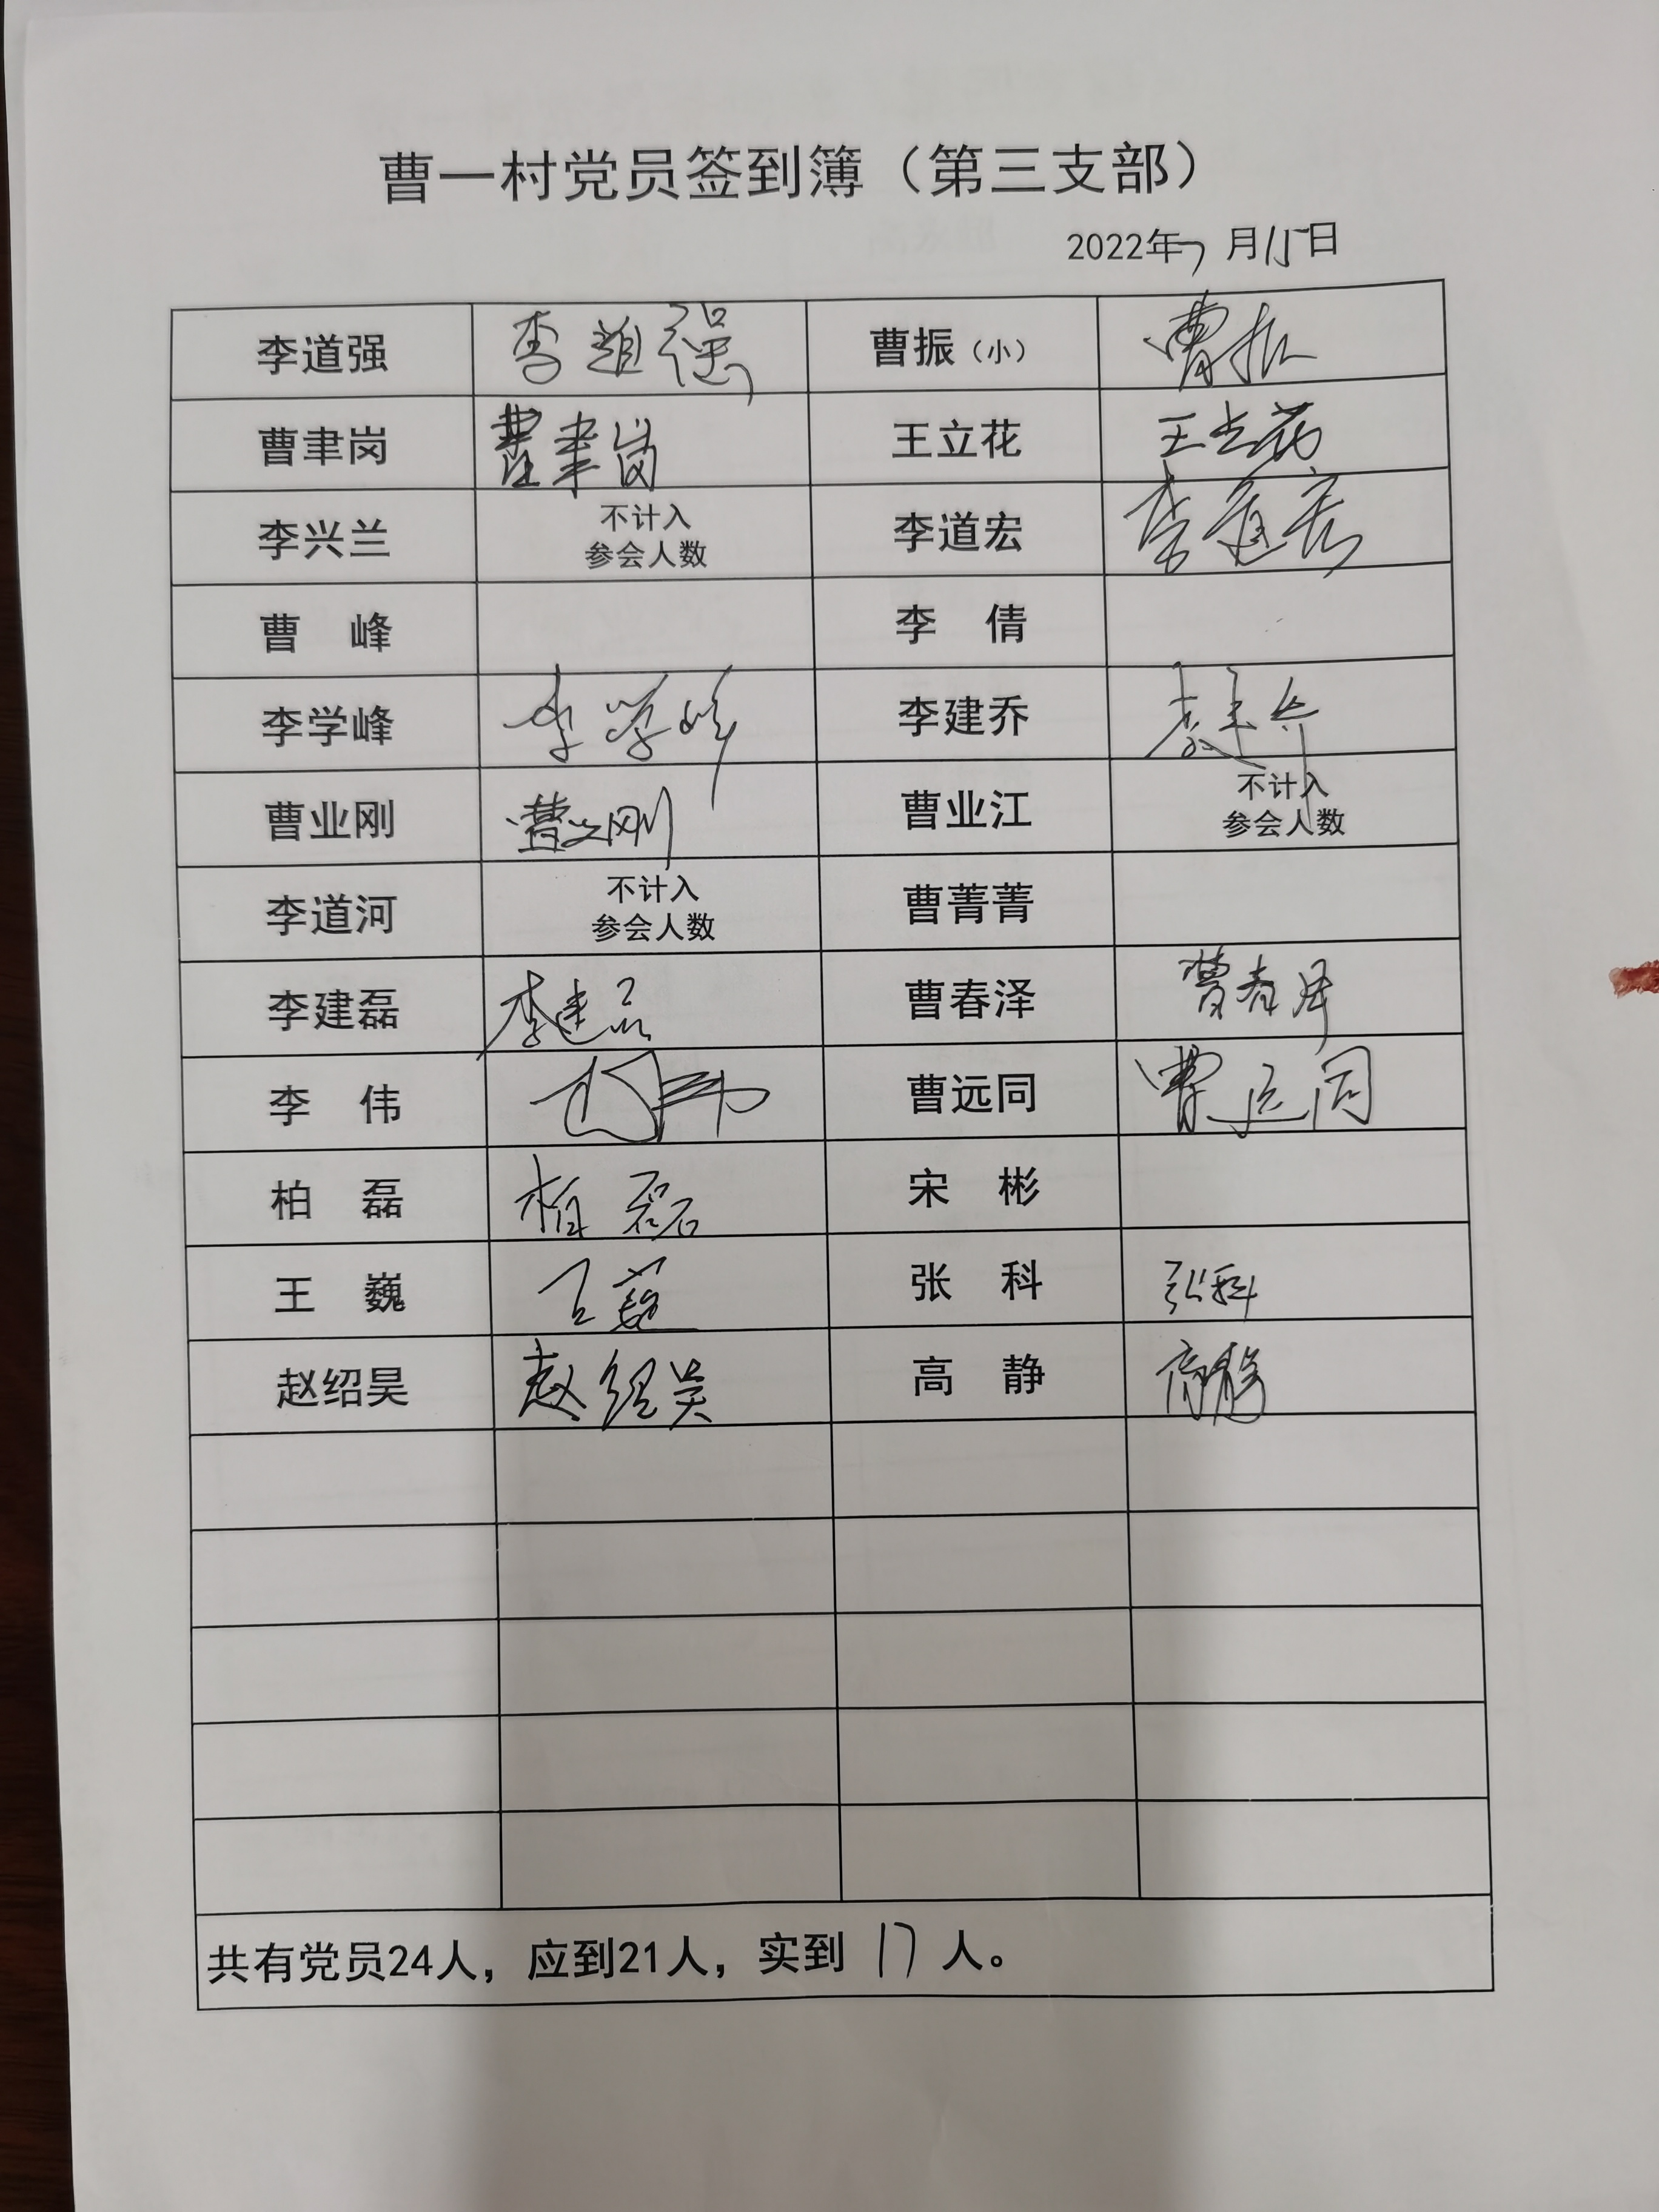 曹一村党员签到簿（第三支部）
2022年7月15日
李道强 李道强 曹振（小） 曹振
曹聿岗 曹聿岗 王立花 王立花
李兴兰 不计入 李道宏 李道宏
参会人数
曹 峰 李 倩
李学峰 李学峰 李建乔 李建乔
曹业刚 曹业刚 曹业江 不计入
参会人数
李道河 不计入 曹菁菁
参会人数
李建磊 李建磊 曹春泽 曹春泽
李 伟 李伟 曹远同 曹远同
柏 磊 柏磊 宋 彬
王 巍 王巍 张 科 张科
赵绍昊 赵绍昊 高 静 高静
共有党员24人，应到21人，实到 17 人。